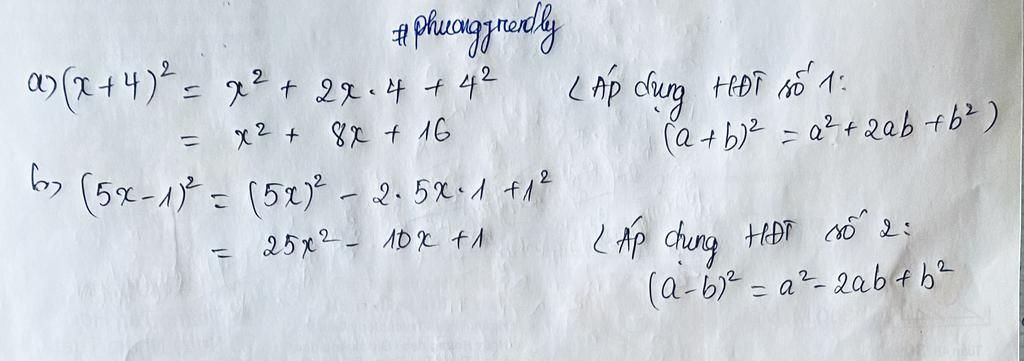 #phuongjrendly
a) (x+4)² = x² + 2x . 4 + 4² (Áp dụng HĐT số 1:
= x² + 8x + 16 (a+b)² = a² + 2ab + b²)
b) (5x-1)² = (5x)² - 2 . 5x . 1 + 1²
= 25x² - 10x + 1 (Áp dụng HĐT số 2:
(a-b)² = a² - 2ab + b²